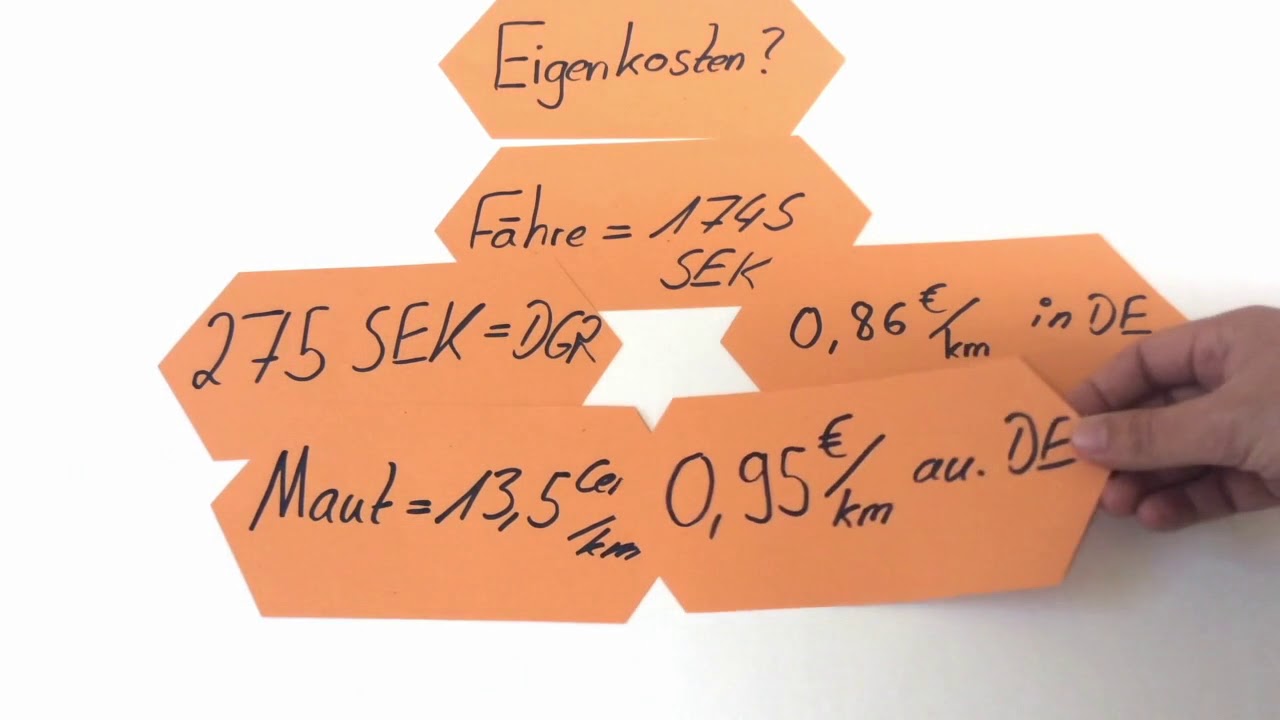 Eigenkosten?
Fähre = 1745
SEK
275 SEK = DGR
0,86 €/km in DE
Maut = 13,5 Ce, /km
0,95 €/km au. DE